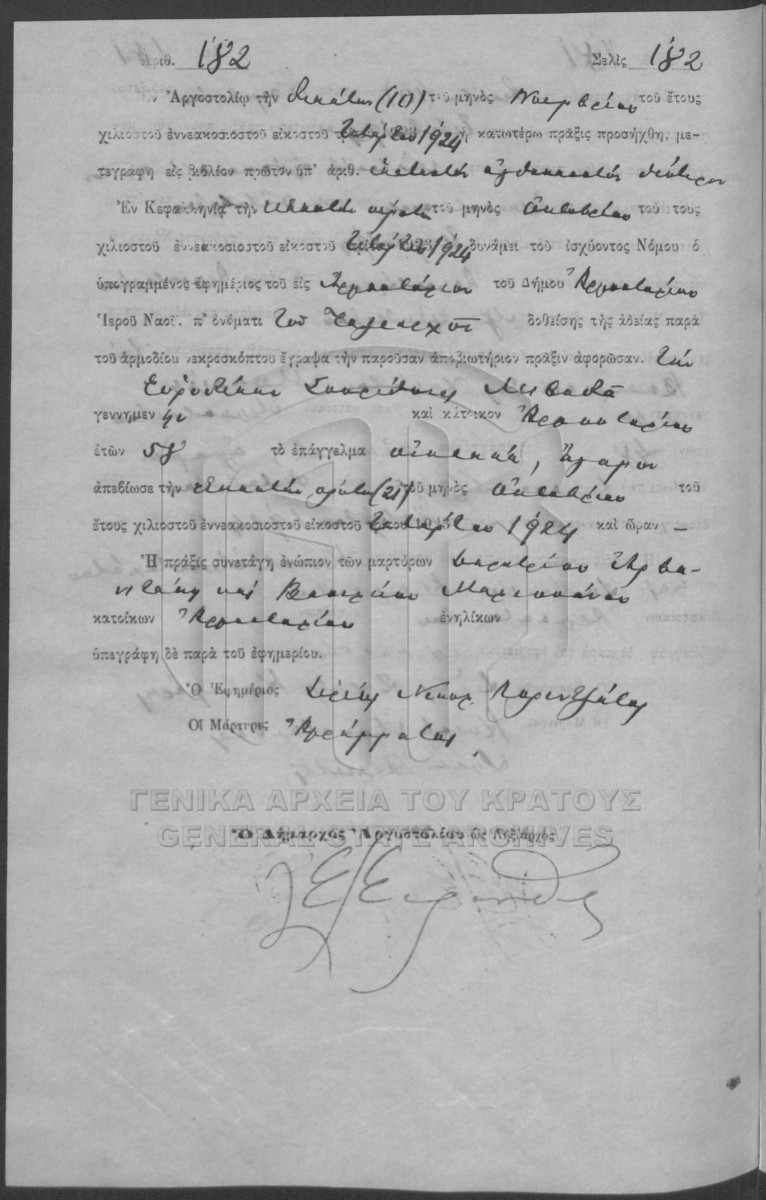 Ἀριθ. 182 Σελὶς 182
Ἐν Ἀργοστολίῳ τὴν δεκάτην (10) τοῦ μηνὸς Νοεμβρίου τοῦ ἔτους
χιλιοστοῦ ἐννεακοσιοστοῦ εἰκοστοῦ τετάρτου 1924 ἡ κατωτέρω πρᾶξις προσήχθη, με-
τεγράφη εἰς βιβλίον πρῶτον ὑπ' ἀριθ. ἑκατοστὸν ὀγδοηκοστὸν δεύτερον
Ἐν Κεφαλληνίᾳ τὴν εἰκοστὴν πρώτην τοῦ μηνὸς Ὀκτωβρίου τοῦ ἔτους
χιλιοστοῦ ἐννεακοσιοστοῦ εἰκοστοῦ τετάρτου 1924 δυνάμει τοῦ ἰσχύοντος Νόμου ὁ
ὑπογραμμένος ἐφημέριος τοῦ εἰς Ἀργοστόλιον τοῦ Δήμου Ἀργοστολίου
Ἱεροῦ Ναοῦ, π' ὀνόματι τοῦ δοθείσης τῆς ἀδείας παρὰ
τοῦ ἁρμοδίου νεκροσκόπτου ἔγραψα τὴν παροῦσαν ἀποβιωτήριον πρᾶξιν ἀφορῶσαν. τὴν
Εὐρυδίκην Σπυρίδωνος Λιβαδᾶ
γεννημεν ην καὶ κάτοικον Ἀργοστολίου
ἐτῶν 58 τὸ ἐπάγγελμα οἰκιακά, ἄγαμον
ἀπεβίωσε τὴν εἰκοστὴν πρώτην (21) τοῦ μηνὸς Ὀκτωβρίου τοῦ
ἔτους χιλιοστοῦ ἐννεακοσιοστοῦ εἰκοστοῦ τετάρτου 1924 καὶ ὥραν —
Ἡ πρᾶξις συνετάγη ἐνώπιον τῶν μαρτύρων
καὶ Βασιλείου
κατοίκων Ἀργοστολίου ἐνηλίκων
ὑπεγράφη δὲ παρὰ τοῦ ἐφημερίου.
Ὁ Ἐφημέριος
Οἱ Μάρτυρες Ἀγράμματοι
ΓΕΝΙΚΑ ΑΡΧΕΙΑ ΤΟΥ ΚΡΑΤΟΥΣ
Ὁ Δήμαρχος Ἀργοστολίου ὡς Ληξίαρχος
GENERAL STATE ARCHIVES